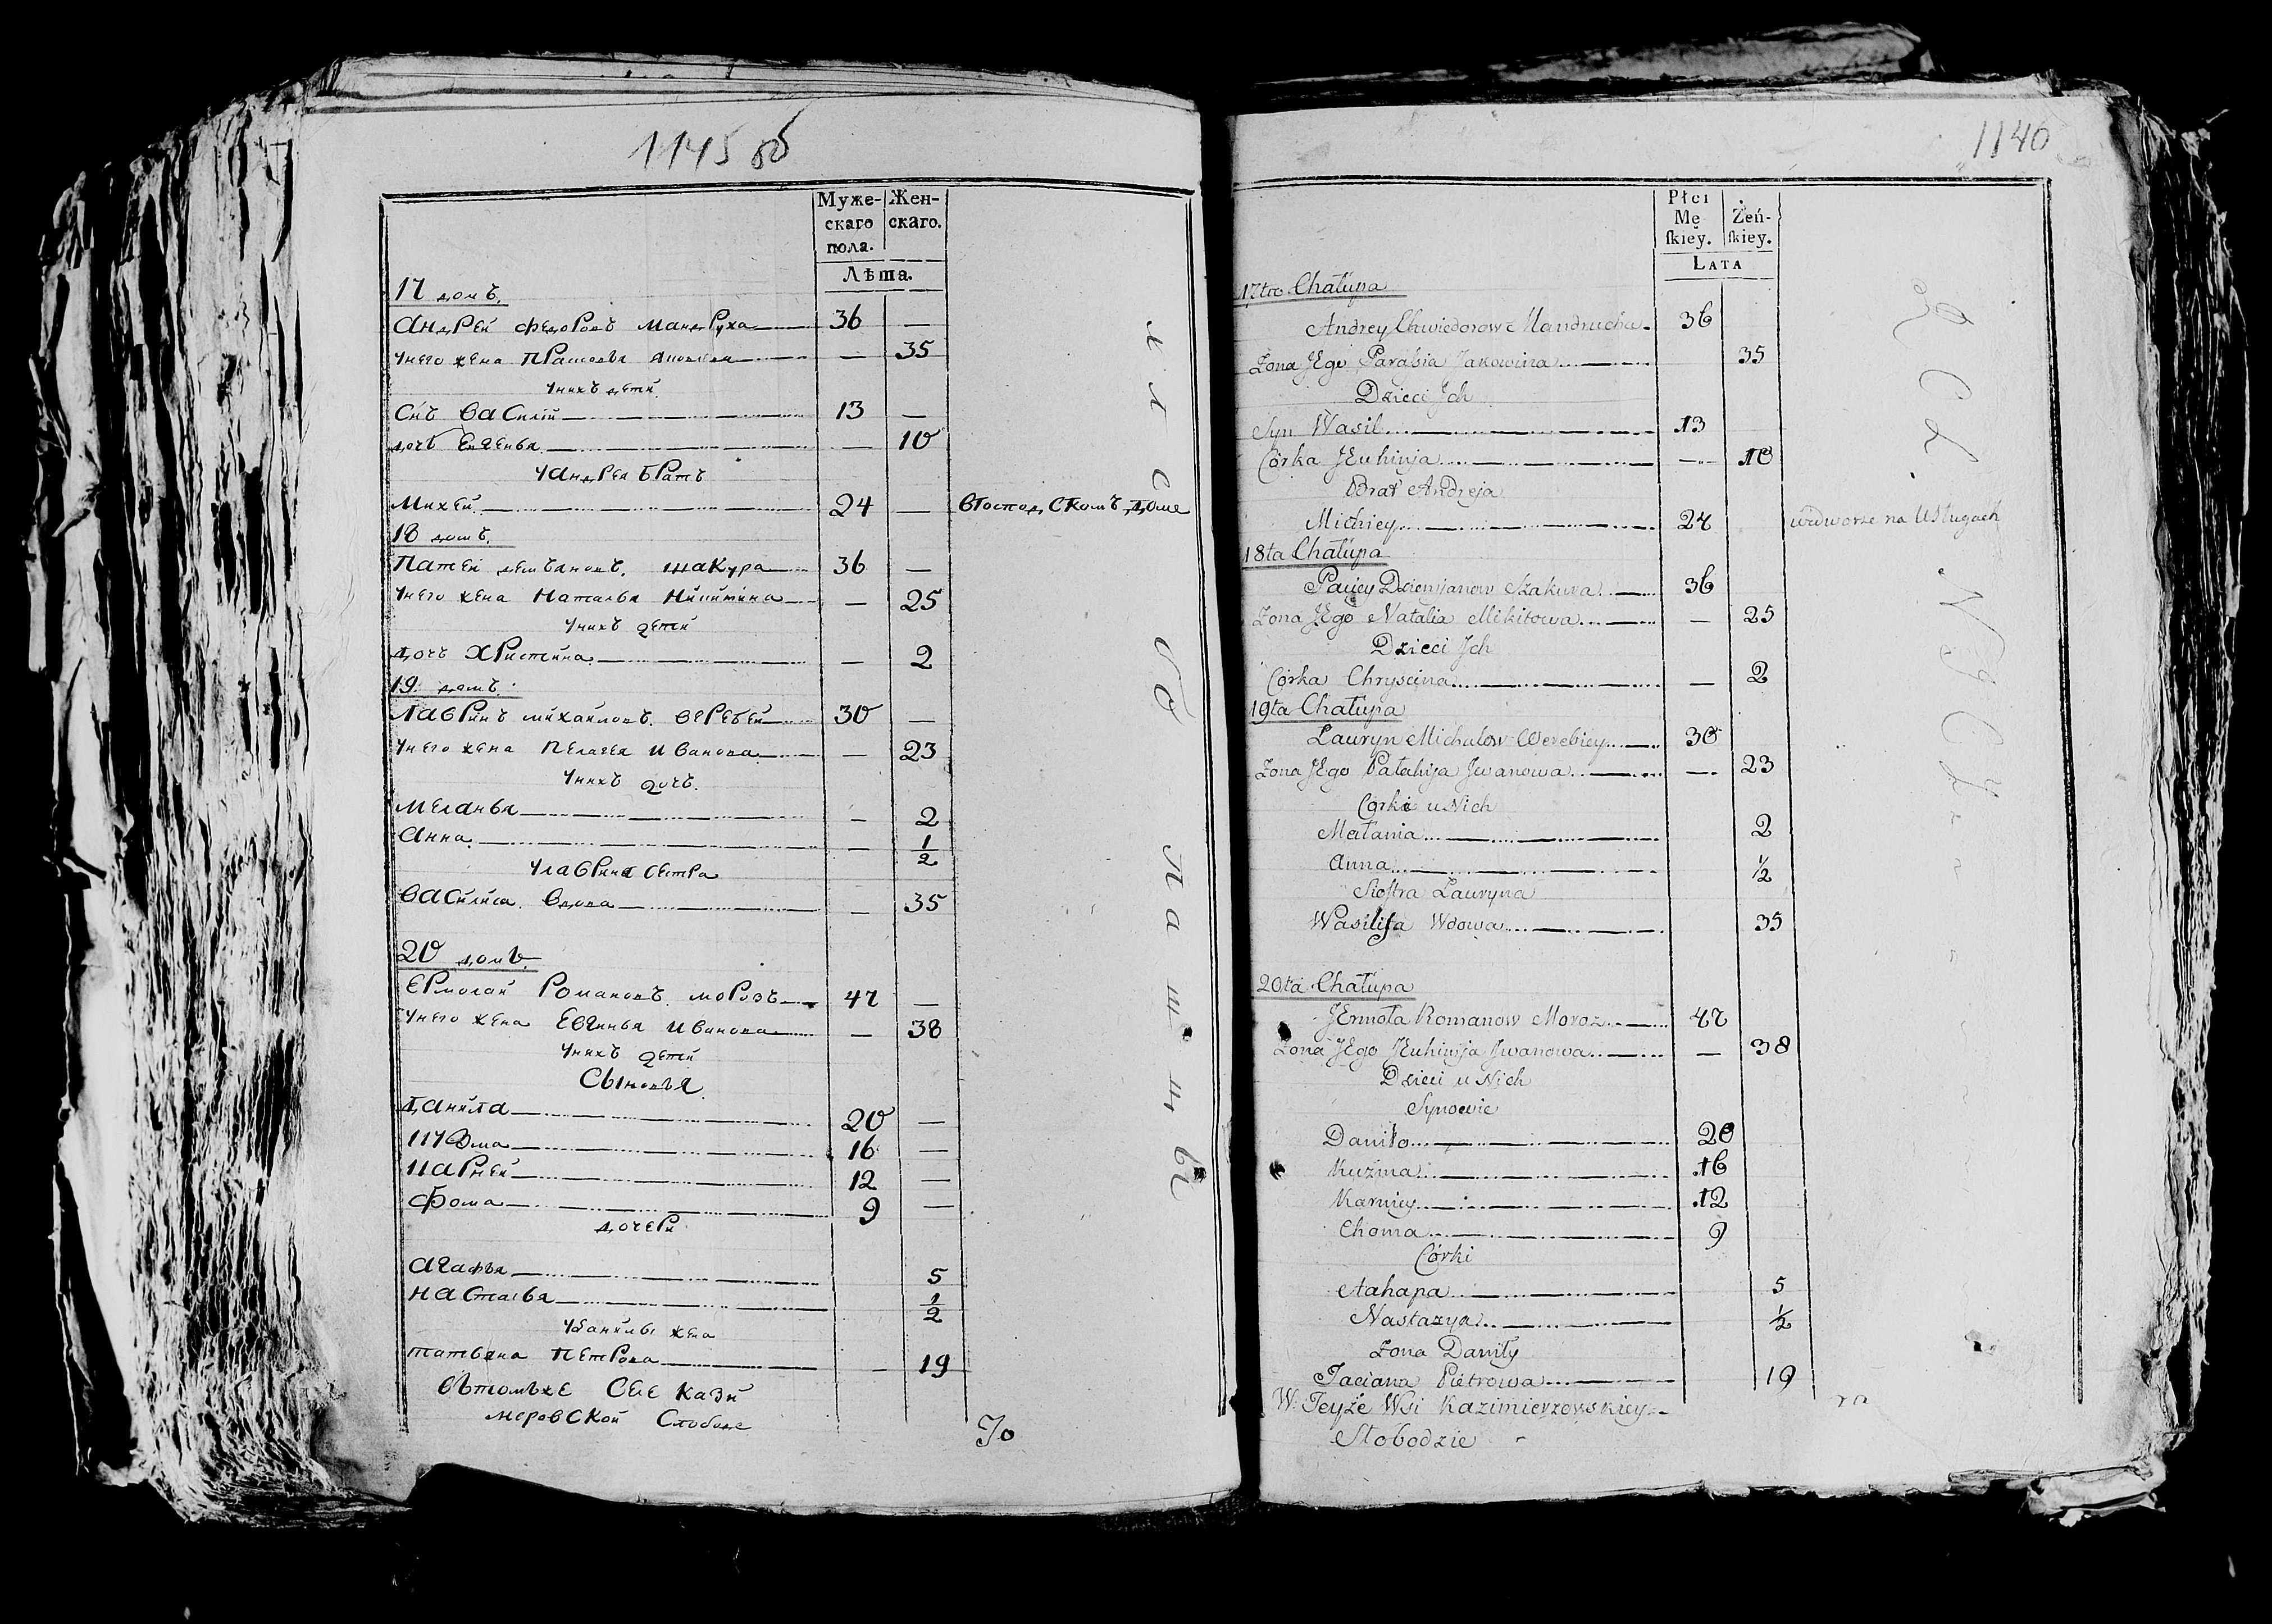 1145 об
Муже-
скаго
пола.
Жен-
скаго.
Лѣта.
17 домъ.
Андрей Федоровъ Мандруха 36 —
Унего жена Прасковья Яковлева — 35
Унихъ дети
Снъ Василій 13 —
дочь Евгенья — 10
У Андрея братъ
Михей 24 — вГосподскомъ доме
18 домъ.
Патей Демьяновъ. Шакура 36 —
Унего жена Наталья Никитина — 25
Унихъ дети
дочь Христина — 2
19 домъ.
Лавринъ Михайловъ. Веребей 30 —
Унего жена Пелагея Иванова — 23
Унихъ дочь.
Меланья — 2
Анна — 1/2
У Лаврина сестра
Василиса Вдова — 35
20 домъ
Ермолай Романовъ. Морозъ 47 —
Унего жена Евгинья Иванова — 38
Унихъ дети
Сыновья
Данила 20 —
Кузма 16 —
Карней 12 —
Фома 9 —
дочери
Агафья 5
Настасья 1/2
У Данилы жена
Татьяна Петрова — 19
Вътомъже Селе Кази
меровской Слободе
1146
Płci
Mę
skiey.
Żeń-
skiey.
LATA
17ta Chałupa
Andrey Chwiedorow Mandrucha 36
Żona JEgo Parasia Jakowina 35
Dzieci Jch
Syn Wasil 13
Córka JEuhinja — 10
Brat Andreja
Michiey 24 wedworze na Usługach
18ta Chałupa
Paciey Dziemjanow Szakura 36
Żona JEgo Natalia Mikitowa — 25
Dzieci Jch
Córka Chryscina — 2
19ta Chałupa
Lauryn Michałow Werebiey 30
Żona JEgo Pałahija Jwanowa — 23
Córki u Nich
Małania 2
Anna 1/2
Siostra Lauryna
Wasilisa Wdowa 35
20ta Chałupa
JErmoła Romanow Moroz 47
Żona JEgo JEuhinija Jwanowa — 38
Dzieci u Nich
Synowie
Daniło 20
Kuźma 16
Karniey 12
Choma 9
Córki
Ahapa 5
Nastazya 1/2
Żona Daniły
Taciana Pietrowa 19
W Teyże Wsi Kazimierzowskiey
Słobodzie